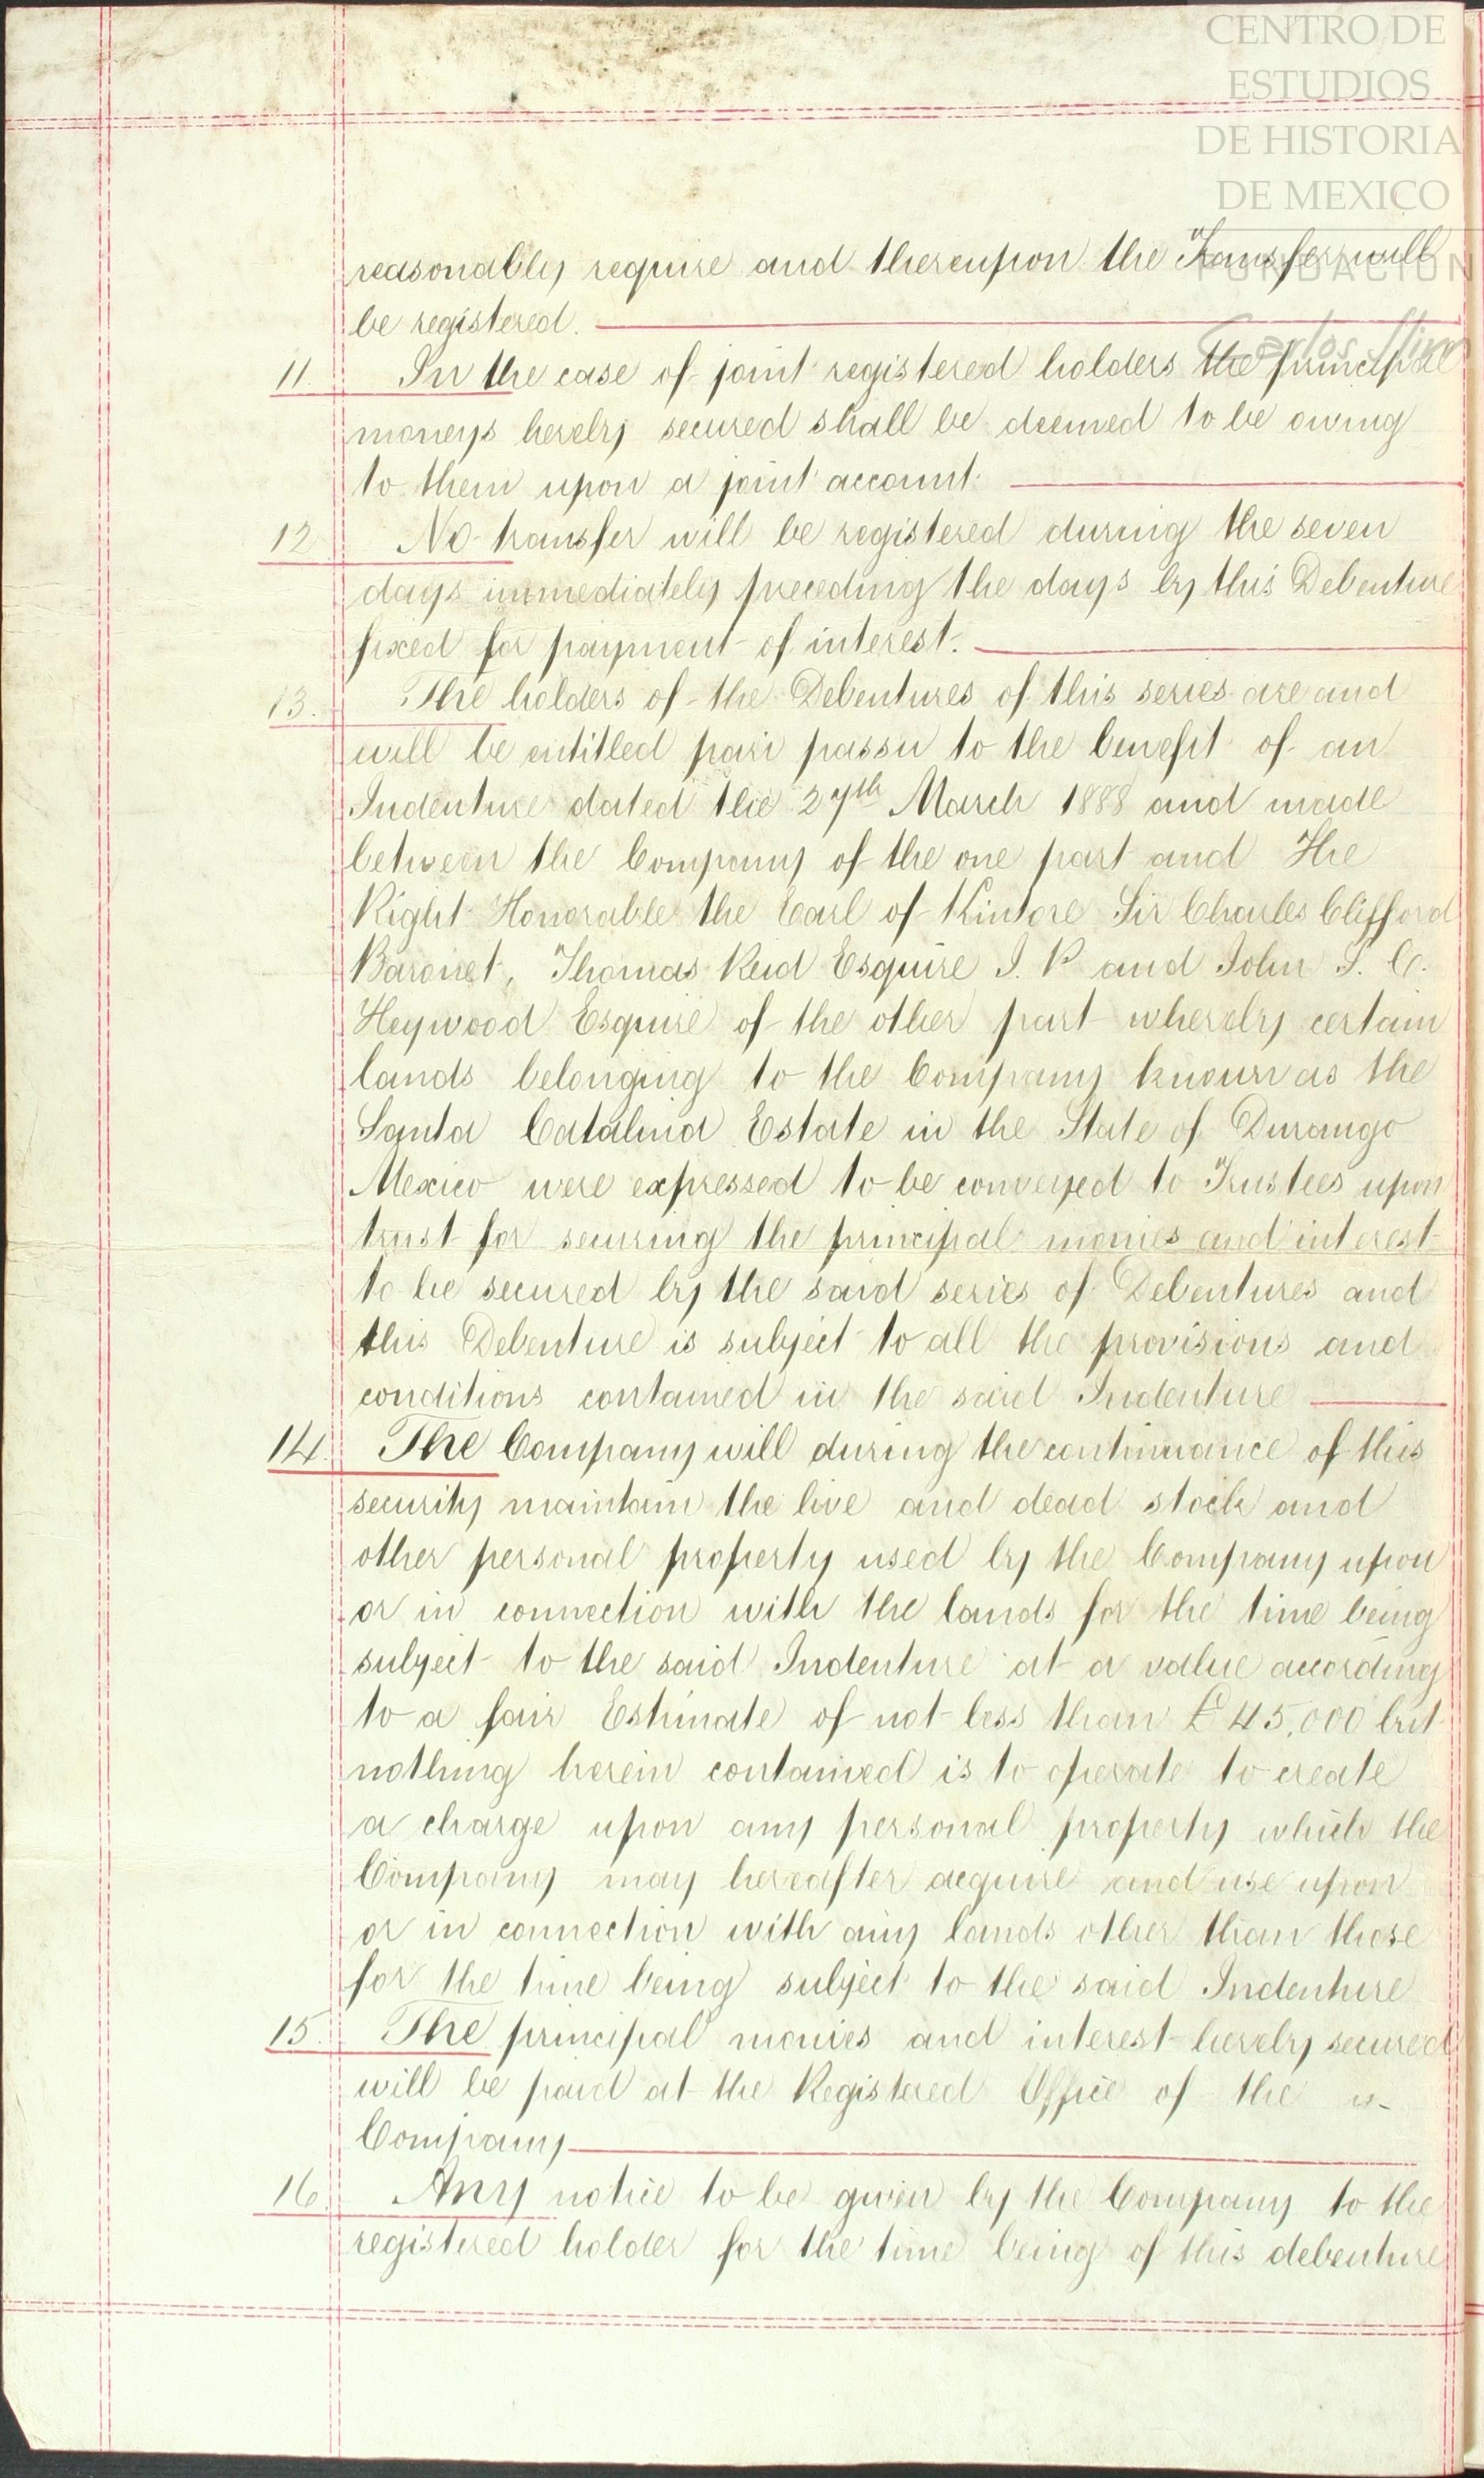 CENTRO DE
ESTUDIOS
DE HISTORIA
DE MEXICO
FUNDACION
Carlos Slim
reasonably require and thereupon the Transfer will
be registered.
11. In the case of joint registered holders the principal
moneys hereby secured shall be deemed to be owing
to them upon a joint account.
12 No transfer will be registered during the seven
days immediately preceding the days by this Debenture
fixed for payment of interest.
13. The holders of the Debentures of this series are and
will be entitled pari passu to the benefit of an
Indenture dated the 27th March 1888 and made
between the Company of the one part and The
Right Honorable the Earl of Kintore Sir Charles Clifford
Baronet, Thomas Reid Esquire J. P and John S. C.
Heywood Esquire of the other part whereby certain
lands belonging to the Company known as the
Santa Catalina Estate in the State of Durango
Mexico were expressed to be conveyed to Trustees upon
trust for securing the principal monies and interest
to be secured by the said series of Debentures and
this Debenture is subject to all the provisions and
conditions contained in the said Indenture
14. The Company will during the continuance of this
security maintain the live and dead stock and
other personal property used by the Company upon
or in connection with the lands for the time being
subject to the said Indenture at a value according
to a fair Estimate of not less than £45,000 but
nothing herein contained is to operate to create
a charge upon any personal property which the
Company may hereafter acquire and use upon
or in connection with any lands other than those
for the time being subject to the said Indenture
15. The principal monies and interest hereby secured
will be paid at the Registered Office of the
Company
16. Any notice to be given by the Company to the
registered holder for the time being of this debenture